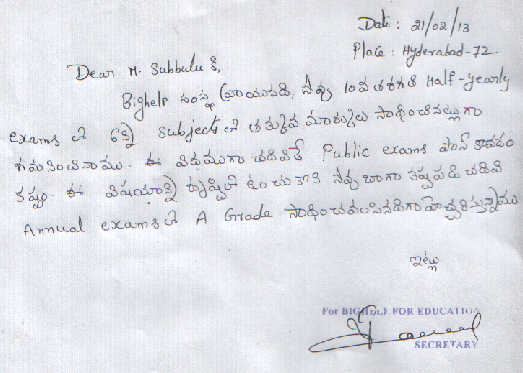 Date: 21/02/13
Place: Hyderabad-72.
Dear M. Subbulu కి,
Bighelp సంస్థ వ్రాయునది, నీవు 10వ తరగతి Half-yearly
exams లో కొన్ని Subjects లో తక్కువ మార్కులు సాధించినట్లుగా
గమనించినాము. ఈ విధముగా చదివితే Public exams పాస్ కావడం
కష్టం. ఈ విషయాన్ని దృష్టిలో ఉంచుకొని నీవు బాగా కష్టపడి చదివి
Annual exams లో A Grade సాధించవలసినదిగా హెచ్చరిస్తున్నాము
ఇట్లు
For BIGHELP FOR EDUCATION
SECRETARY